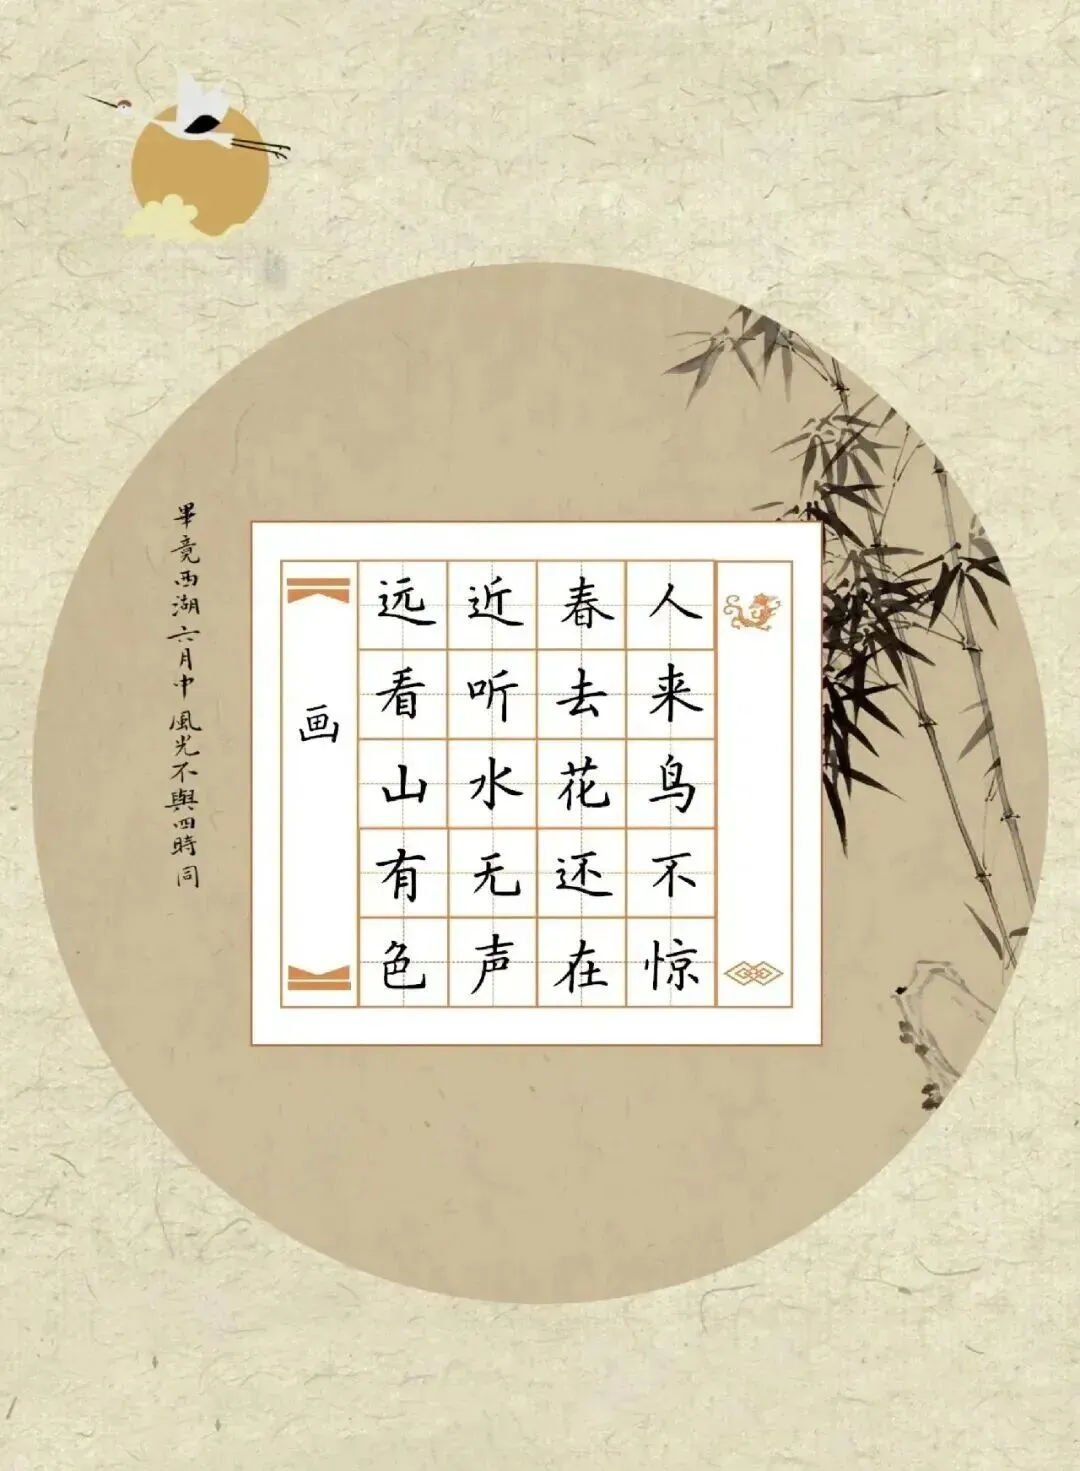 画
远看山有色
近听水无声
春去花还在
人来鸟不惊
畢竟西湖六月中風光不與四時同